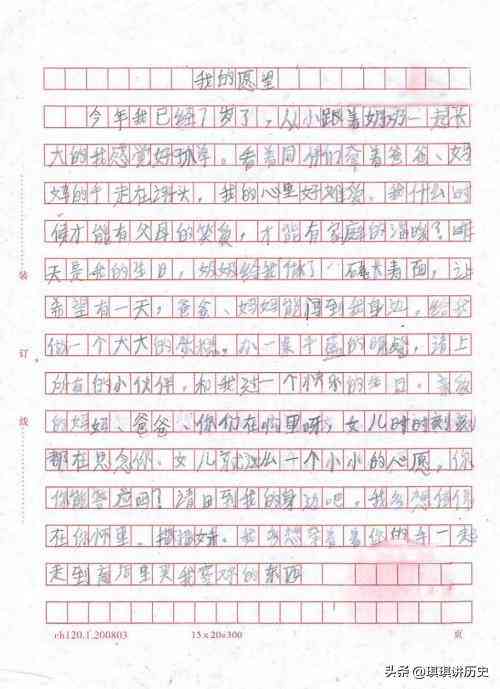 我的愿望
今年我已经7岁了，从小跟着妈妈一起长
大的我感觉好孤单。看着同伴们牵着爸爸、妈
妈的手走在街头，我的心里好难受。我什么时
候才能有父母的关爱，才能有家庭的温暖？昨
天是我的生日，妈妈给我做了一碗长寿面，
希望有一天，爸爸、妈妈能回到我身边，给我
做一个大大的蛋糕，点一桌子的蜡烛，请上
所有的小伙伴，和我过一个快乐的生日。亲爱
的妈妈、爸爸、你们在哪里呀，女儿时时刻刻
都在思念你、女儿就这么一个小小的心愿，你
你能答应吗？请回到我的身边吧，我多想偎偎
在你怀里。我多想牵着着你的手一起
走到商场里买我喜欢的东西
装
订
线
rh120.1.200803
15x20=300
页
头条 @琪琪讲历史